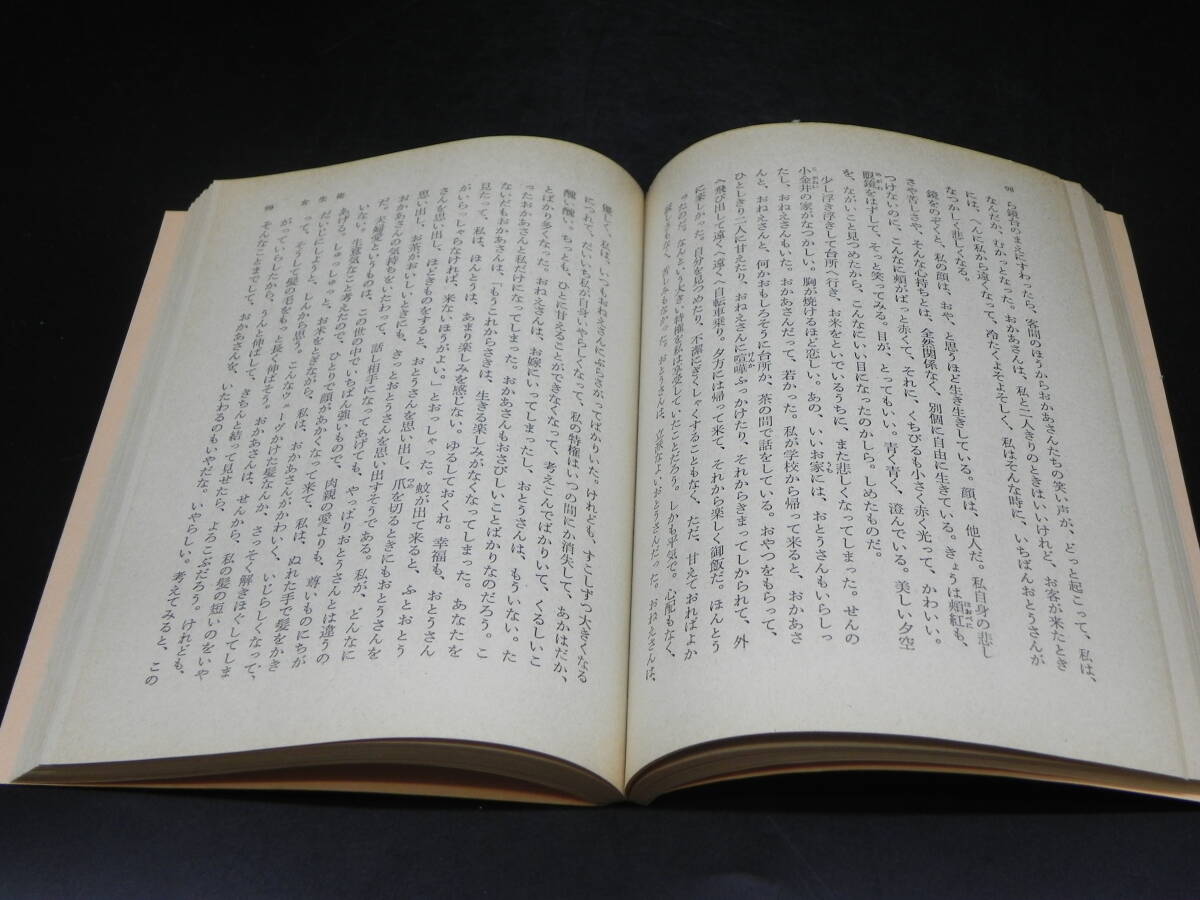 98
ら鏡台のまえにすわったら、客間のほうからおかあさんたちの笑い声が、どっと起こって、私は、
なんだか、むかっとなった。おかあさんは、私と二人きりのときはいいけれど、お客が来たとき
には、へんに私から遠くなって、冷たくよそよそしく、私はそんな時に、いちばんおとうさんが
なつかしく悲しくなる。
鏡をのぞくと、私の顔は、おや、と思うほど生き生きしている。顔は、他人だ。私自身の悲し
さや苦しさや、そんな心持ちとは、全然関係なく、別個に自由に生きている。きょうは頬紅も、
つけないのに、こんなに頬がぱっと赤くて、それに、くちびるも小さく赤く光って、かわいい。
眼鏡をはずして、そっと笑ってみる。目が、とってもいい。青く青く、澄んでいる。美しい夕空
を、ながいこと見つめたから、こんなにいい目になったのかしら。しめたものだ。
少し浮き浮きして台所へ行き、お米をといでいるうちに、また悲しくなってしまった。せんの
小金井の家がなつかしい。胸が焼けるほど恋しい。あの、いいお家には、おとうさんもいらしっ
たし、おねえさんもいた。おかあさんだって、若かった。私が学校から帰って来ると、おかあさ
んと、おねえさんと、何かおもしろそうに台所か、茶の間で話をしている。おやつをもらって、
ひとしきり二人に甘えたり、おねえさんに喧嘩ふっかけたり、それからきまってしかられて、外
へ飛び出して遠くへ遠くへ自転車乗り。夕方には帰って来て、それから楽しく御飯だ。ほんとう
に楽しかった。自分を見つめたり、不潔にぎくしゃくすることもなく、ただ、甘えておればよか
ったのだ。なんという大きい特権を私は享受していたことだろう。しかも平気で。心配もなく、
寂しさもなく、苦しみもなかった。おとうさんは、立派なよいおとうさんだった。おねえさんは、
優しく、私は、いつもおねえさんにぶらさがってばかりいた。けれども、すこしずつ大きくなる
につれて、だいいち私が自身いやらしくなって、私の特権はいつの間にか消失して、あかはだか、
醜い醜い。ちっとも、ひとに甘えることができなくなって、考えこんでばかりいて、くるしいこ
とばかり多くなった。おねえさんは、お嫁にいってしまったし、おとうさんは、もういない。た
ったおかあさんと私だけになってしまった。おかあさんもおさびしいことばかりなのだろう。こ
ないだもおかあさんは、「もうこれからさきは、生きる楽しみがなくなってしまった。あなたを
見たって、私は、ほんとうは、あまり楽しみを感じない。ゆるしておくれ。幸福も、おとうさん
がいらっしゃらなければ、来ないほうがよい。」とおっしゃった。蚊が出て来ると、ふとおとう
さんを思い出し、ほどきものをすると、おとうさんを思い出し、爪を切るときにもおとうさんを
思い出し、お茶がおいしいときにも、きっとおとうさんを思い出すそうである。私が、どんなに
おかあさんの気持ちをいたわって、話し相手になってあげても、やっぱりおとうさんとは違うの
だ。夫婦愛というものは、この世の中でいちばん強いもので、肉親の愛よりも、尊いものにちが
いない。生意気なこと考えたので、ひとりで顔があかくなって来て、私は、ぬれた手で髪をかき
あげる。しゅっしゅっと、お米をとぎながら、私は、おかあさんがかわいく、いじらしくなって、
だいじにしようと、しんから思う。こんなウェーヴかけた髪なんか、さっそく解きほぐしてしま
って、そうして髪の毛をもっと長く伸ばそう。おかあさんは、せんから、私の髪の短いのをいや
がっていらしたから、うんと伸ばして、きちんと結って見せたら、よろこぶだろう。けれども、
そんなことまでして、おかあさんを、いたわるのもいやだな。いやらしい。考えてみると、この
女生徒
99